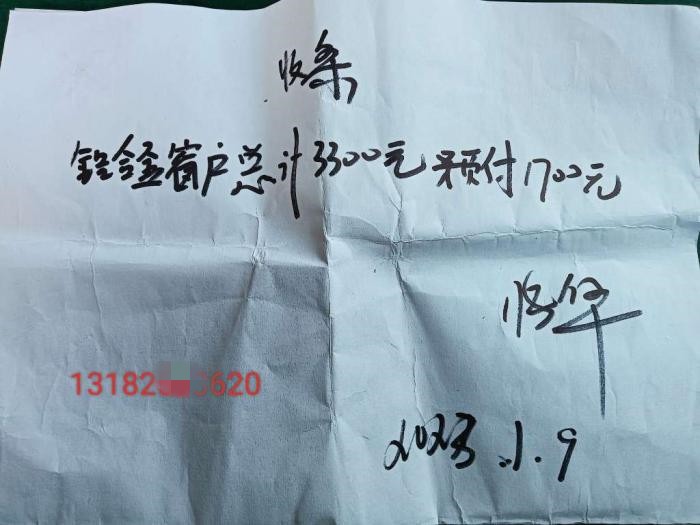 收条
铝合金窗户总计3300元预付1700元
13182 620
2023.1.9